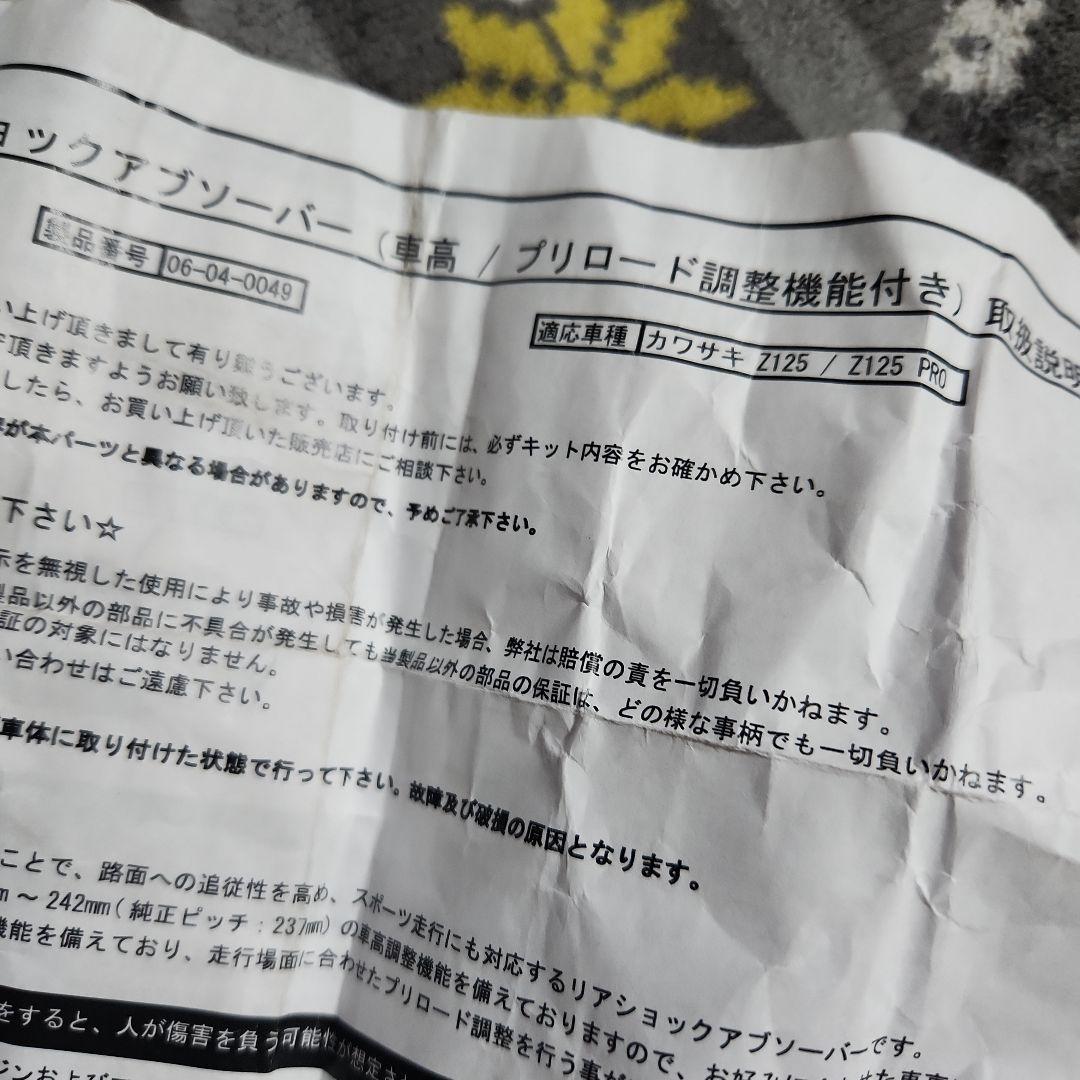 ョックアブソーバー (車高 / プリロード調整機能付き) 取扱説明
製品番号 06-04-0049
適応車種 カワサキ Z125 / Z125 PRO
い上げ頂きまして有り難うございます。
守頂きますようお願い致します。取り付け前には、必ずキット内容をお確かめ下さい。
したら、お買い上げ頂いた販売店にご相談下さい。
が本パーツと異なる場合がありますので、予めご了承下さい。
下さい☆
示を無視した使用により事故や損害が発生した場合、弊社は賠償の責を一切負いかねます。
製品以外の部品に不具合が発生しても当製品以外の部品の保証は、どの様な事柄でも一切負いかねます。
証の対象にはなりません。
い合わせはご遠慮下さい。
車体に取り付けた状態で行って下さい。故障及び破損の原因となります。
ことで、路面への追従性を高め、スポーツ走行にも対応するリアショックアブソーバーです。
～242mm(純正ピッチ：237mm)の車高調整機能を備えておりますので、お好みに
機能を備えており、走行場面に合わせたプリロード調整を行う事が
をすると、人が傷害を負う可能性が想定さ
ジンおよび